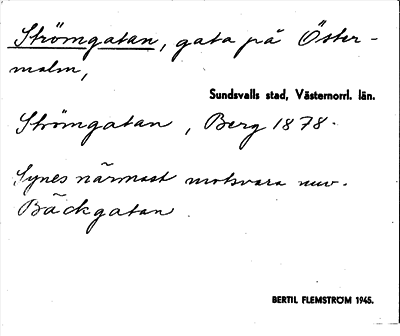 Strömgatan, gata på Öster-
malm,
Sundsvalls stad, Västernorrl. län.
Strömgatan, Berg 1878.
Synes närmast motsvara nuv.
Bäckgatan
BERTIL FLEMSTRÖM 1945.